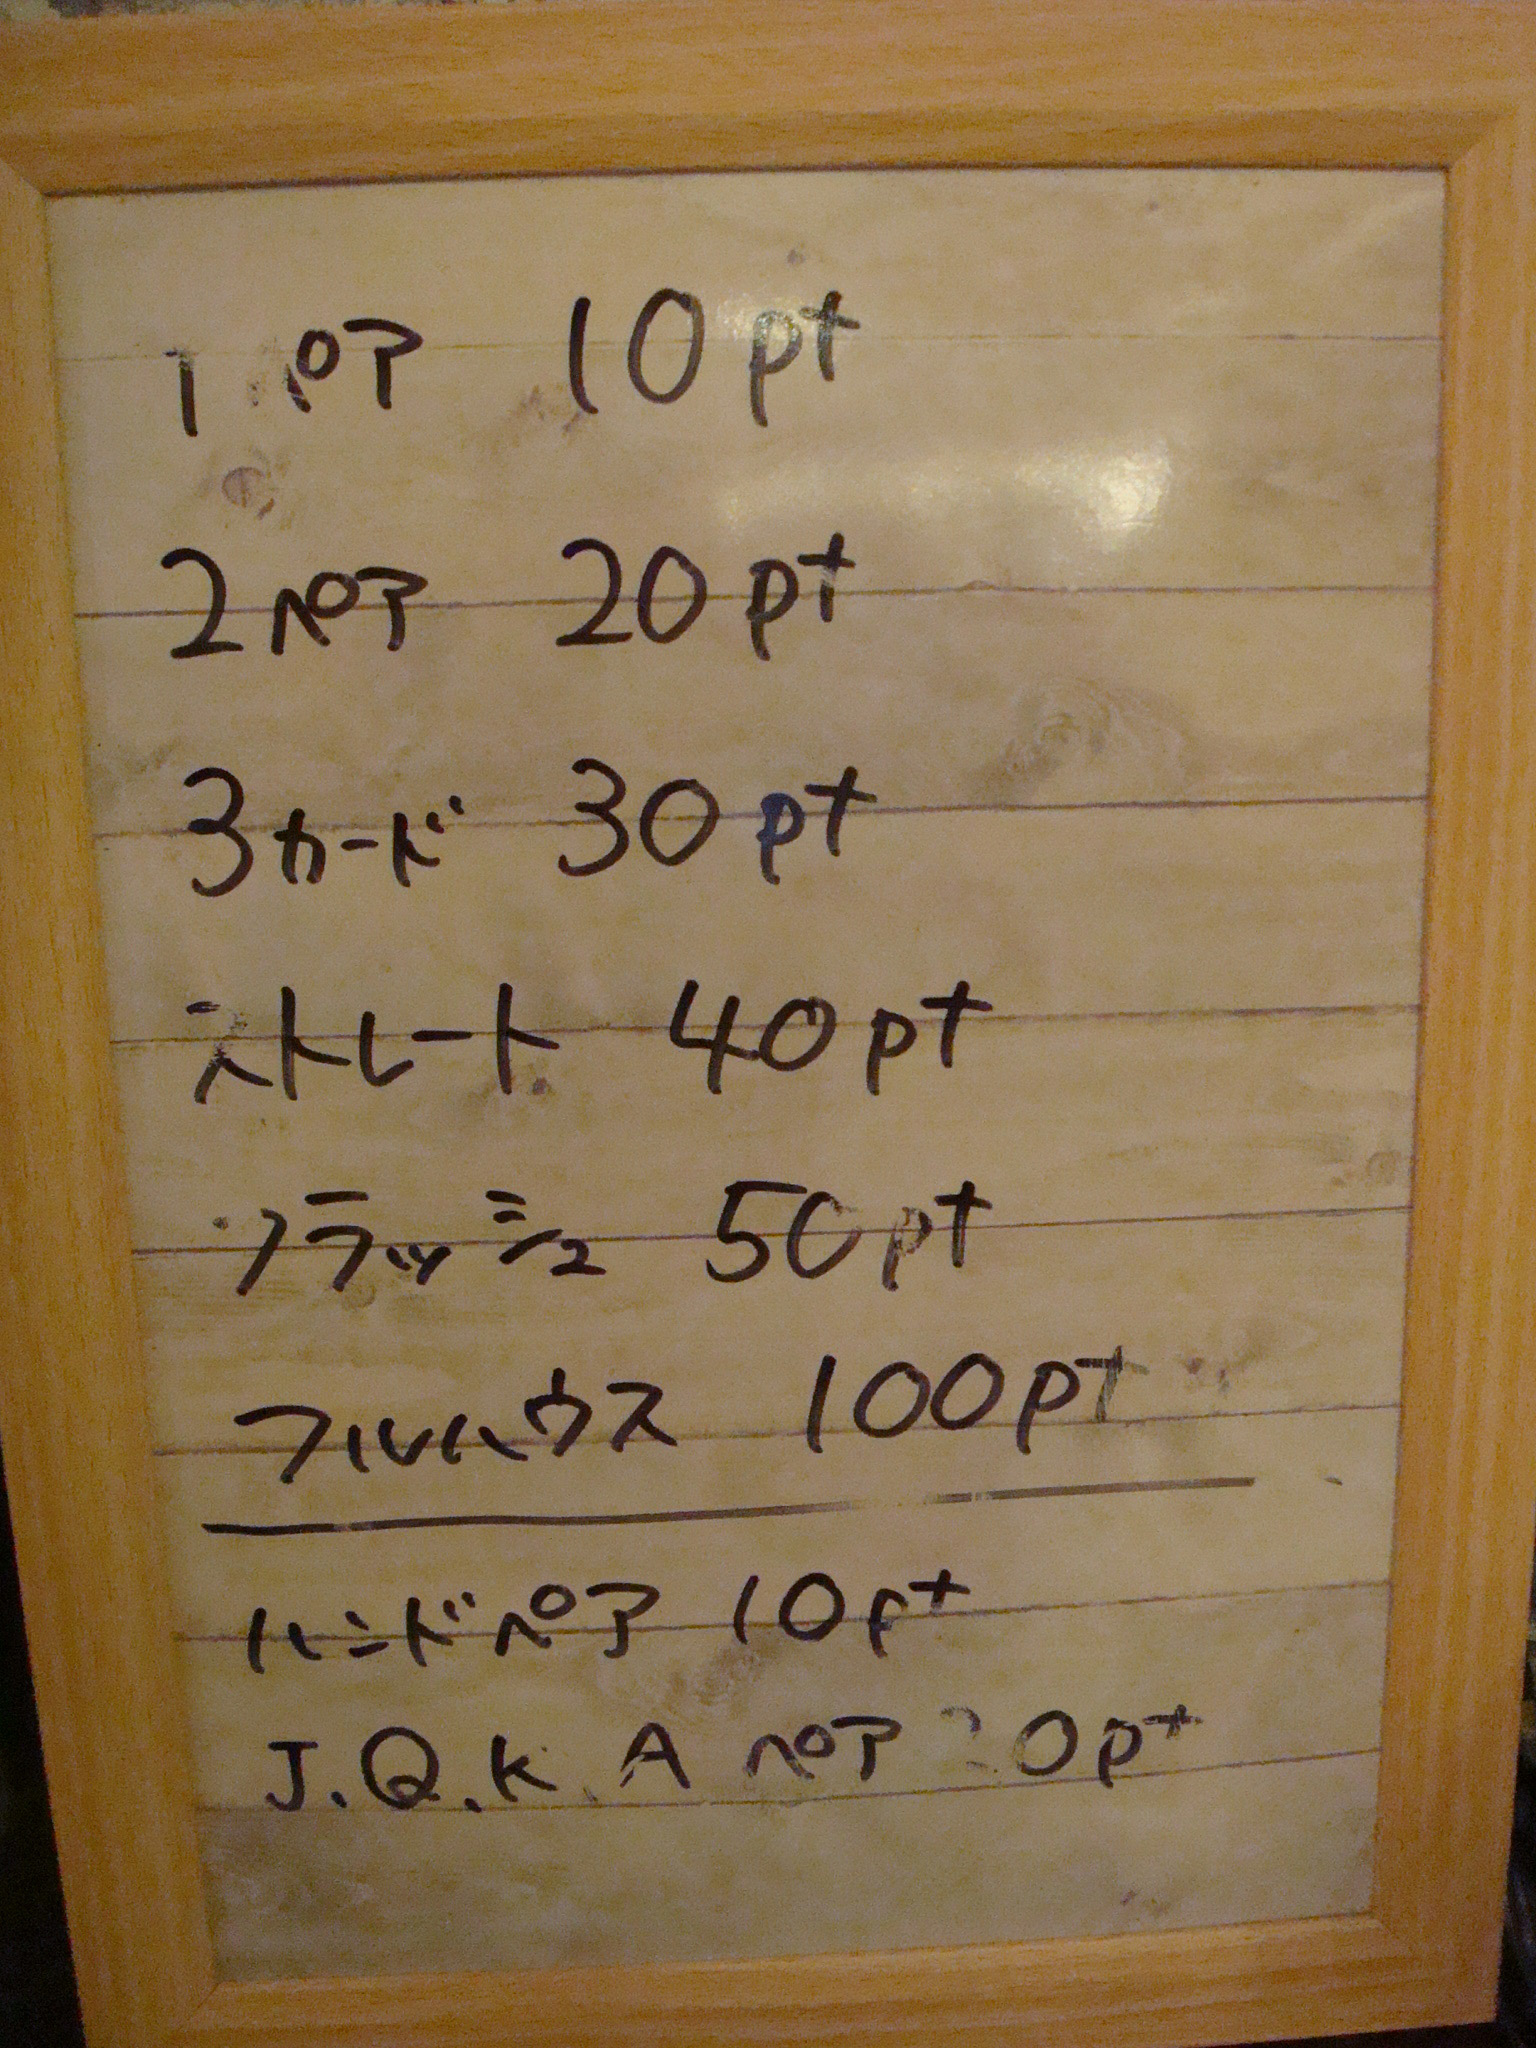 1ペア 10pt
2ペア 20pt
3カード 30pt
ストレート 40pt
フラッシュ 50pt
フルハウス 100pt
ハンドペア 10pt
J.Q.K.Aペア 20pt